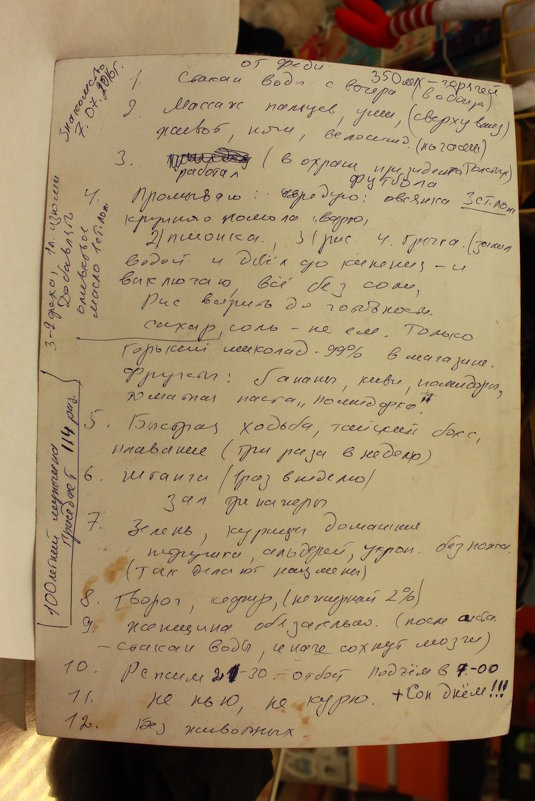 от Феди
знакомство
7.07.2016г.
1. Стакан воды с вечера 350мл - горячей (вода)
2. Массаж пальцев, ушей, (сверху вниз)
живот, ноги, велосипед (
3. (в охране президента
работал футбола
4. Промываю: чередую: овсянка 3 ст. лож.
крупного помола варю,
2) пшонка, 3) рис 4. Гречка. (залил
водой и довёл до кипения - и
выключаю, всё без соли,
Рис варить до готовности.
сахар, соль - не ем. Только
горький шиколад. 99% в магазине.
Фрукты: бананы, киви, помидоры,
томатная паста „помидорка"
5. Быстрая ходьба, тайский бокс,
плавание (три раза в неделю)
6. штанга (1 раз в неделю)
зал тренажеры
7. Зелень, курицы домашние
петрушка, укроп. без ножа.
(так делают нацмены)
8. Творог, кефир, (нежирный 2%)
9. женщина обязательно. (после
- стакан воды, иначе сохнут мозги)
10. Режим 21-30 - отбой подъём в 7-00
11. не пью, не курю. + Сон днём!!!
12. Без животных.
3-4 раза, 1л. изюма
добавлять
оливковое
масло 1 ст. лож.
100летний мужчина
приседает 114 раз.